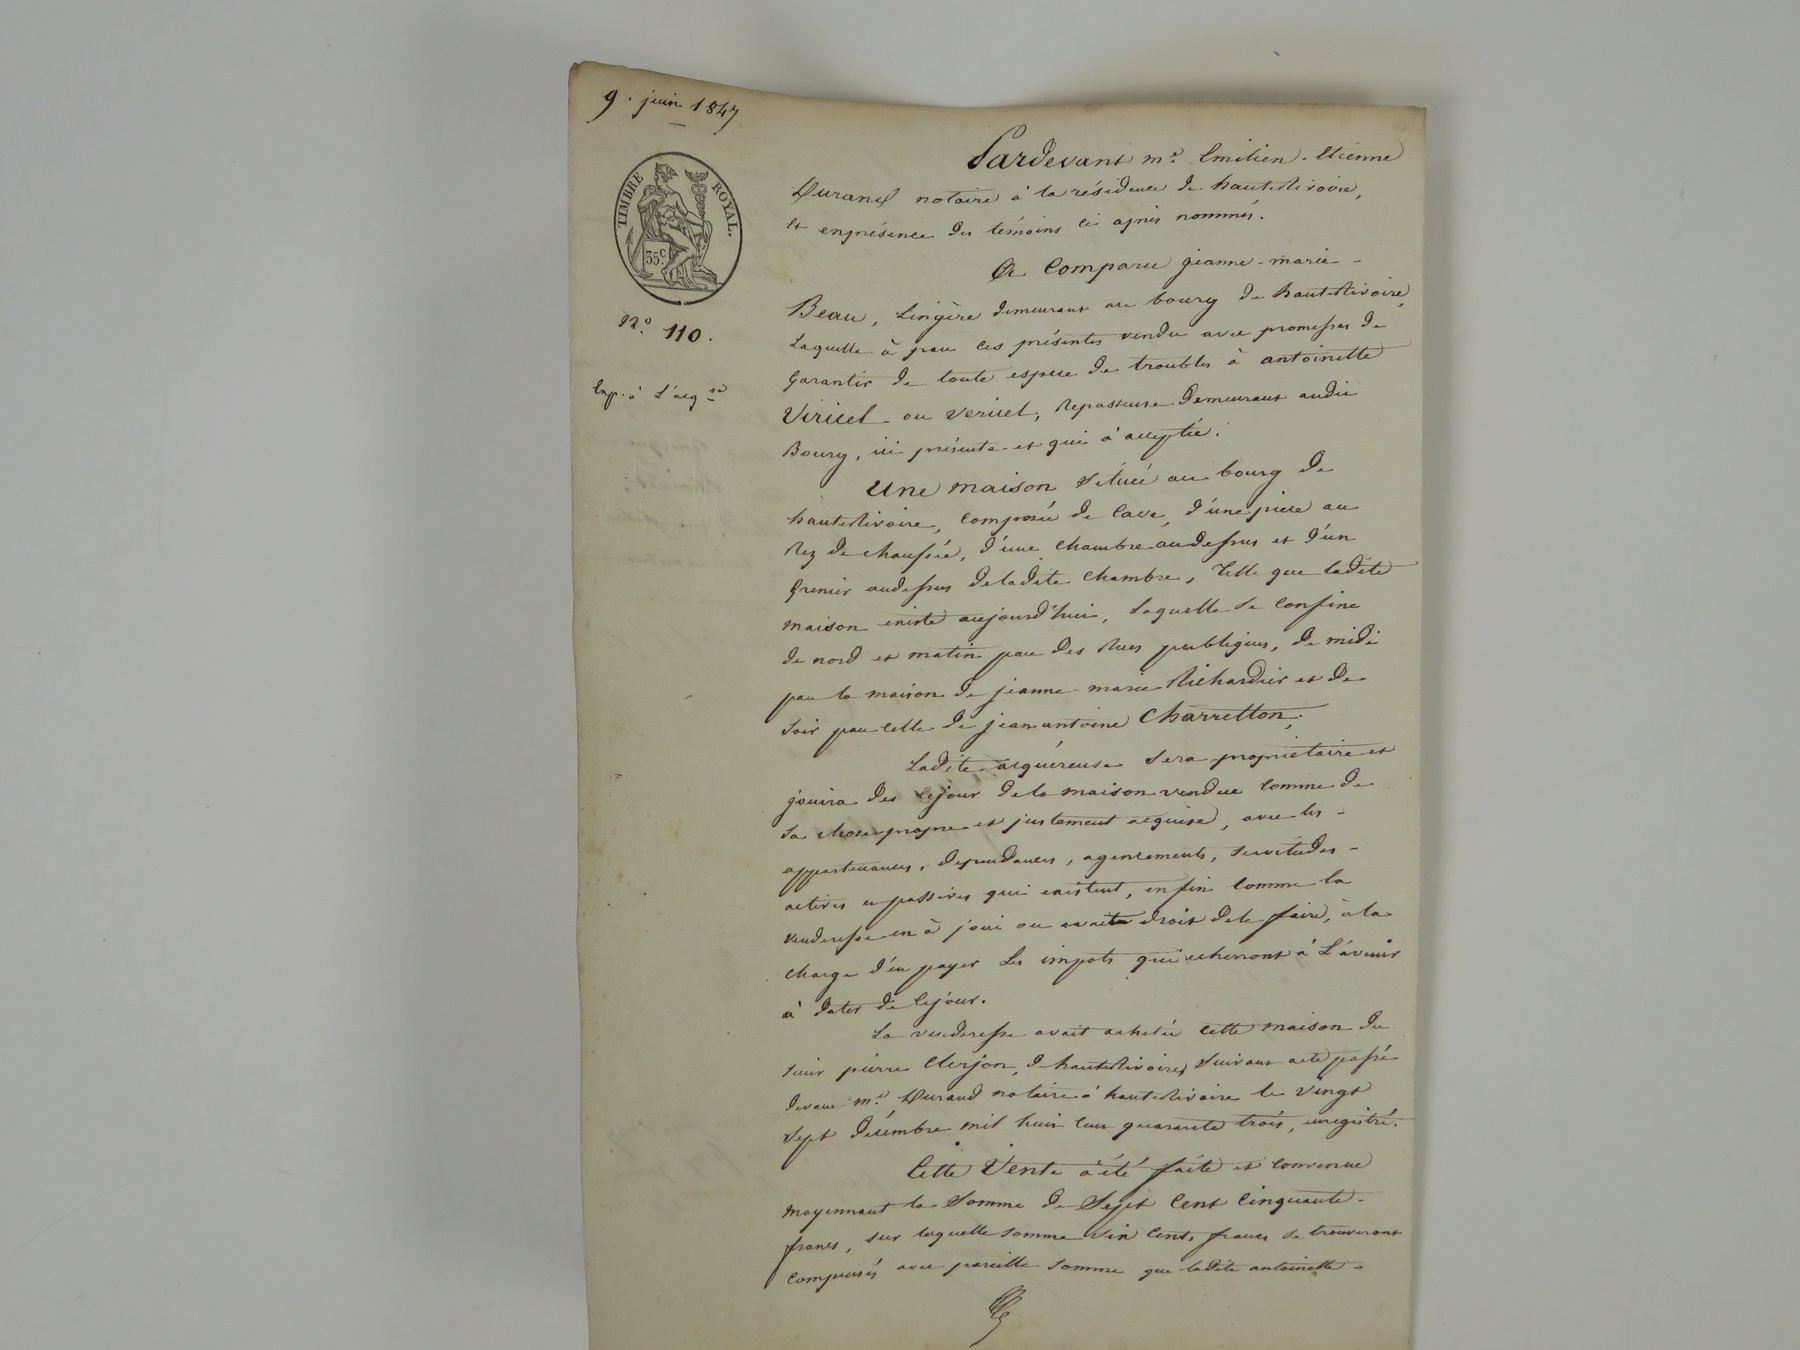 9. juin 1847
TIMBRE ROYAL.
35 c.
N.o 110.
Exp. à L'acq.se
Pardevant m.e Emilien-Etienne
Durand notaire à la résidence de hauterivoire,
et enprésence des témoins ci après nommés.
A Comparu jeanne-marie-
Beau, Lingère demeurant au bourg de hauterivoire,
Laquelle à par ces présentes vendu avec promesses de
Garantir de toute espece de troubles à antoinette
Viricel ou Vericel, Repasseuse Demeurant audit
Bourg, ici présente et qui à acceptée.
Une maison située au bourg de
hauterivoire, Composée de Cave, d'une piece au
Rez de chaussée, d'une chambre audessus et d'un
Grenier audessus deladite chambre, telle que ladite
maison existe aujourd'hui, Laquelle se Confine
de nord et matin par des Rues publiques, de midi
par la maison de jeanne marie Richardier et de
soir par celle de jean antoine Charretton;
Ladite acquéreuse sera propriétaire et
jouira des cejour dela maison vendue comme de
sa chose propre et justement acquise, avec les-
appartenances, dependances, agencements, servitudes-
actives et passives qui existent, enfin Comme la
venderesse en à joui ou avait droit dele faire, à la
charge d'en payer Les impots qui echerront à L'avenir
à dater de cejour.
La venderesse avait achetée cette maison du
sieur pierre Clerjon, de hauterivoire, suivant acte passé
devant m.e Durand notaire à hauterivoire le vingt
sept décembre mil huit cent quarante trois, enregistré.
Cette Vente à été faite et convenue
moyennant la somme de Sept Cent Cinquante-
francs, sur laquelle somme six Cents francs se trouveront
Compensés avec pareille somme que ladite antoinette-